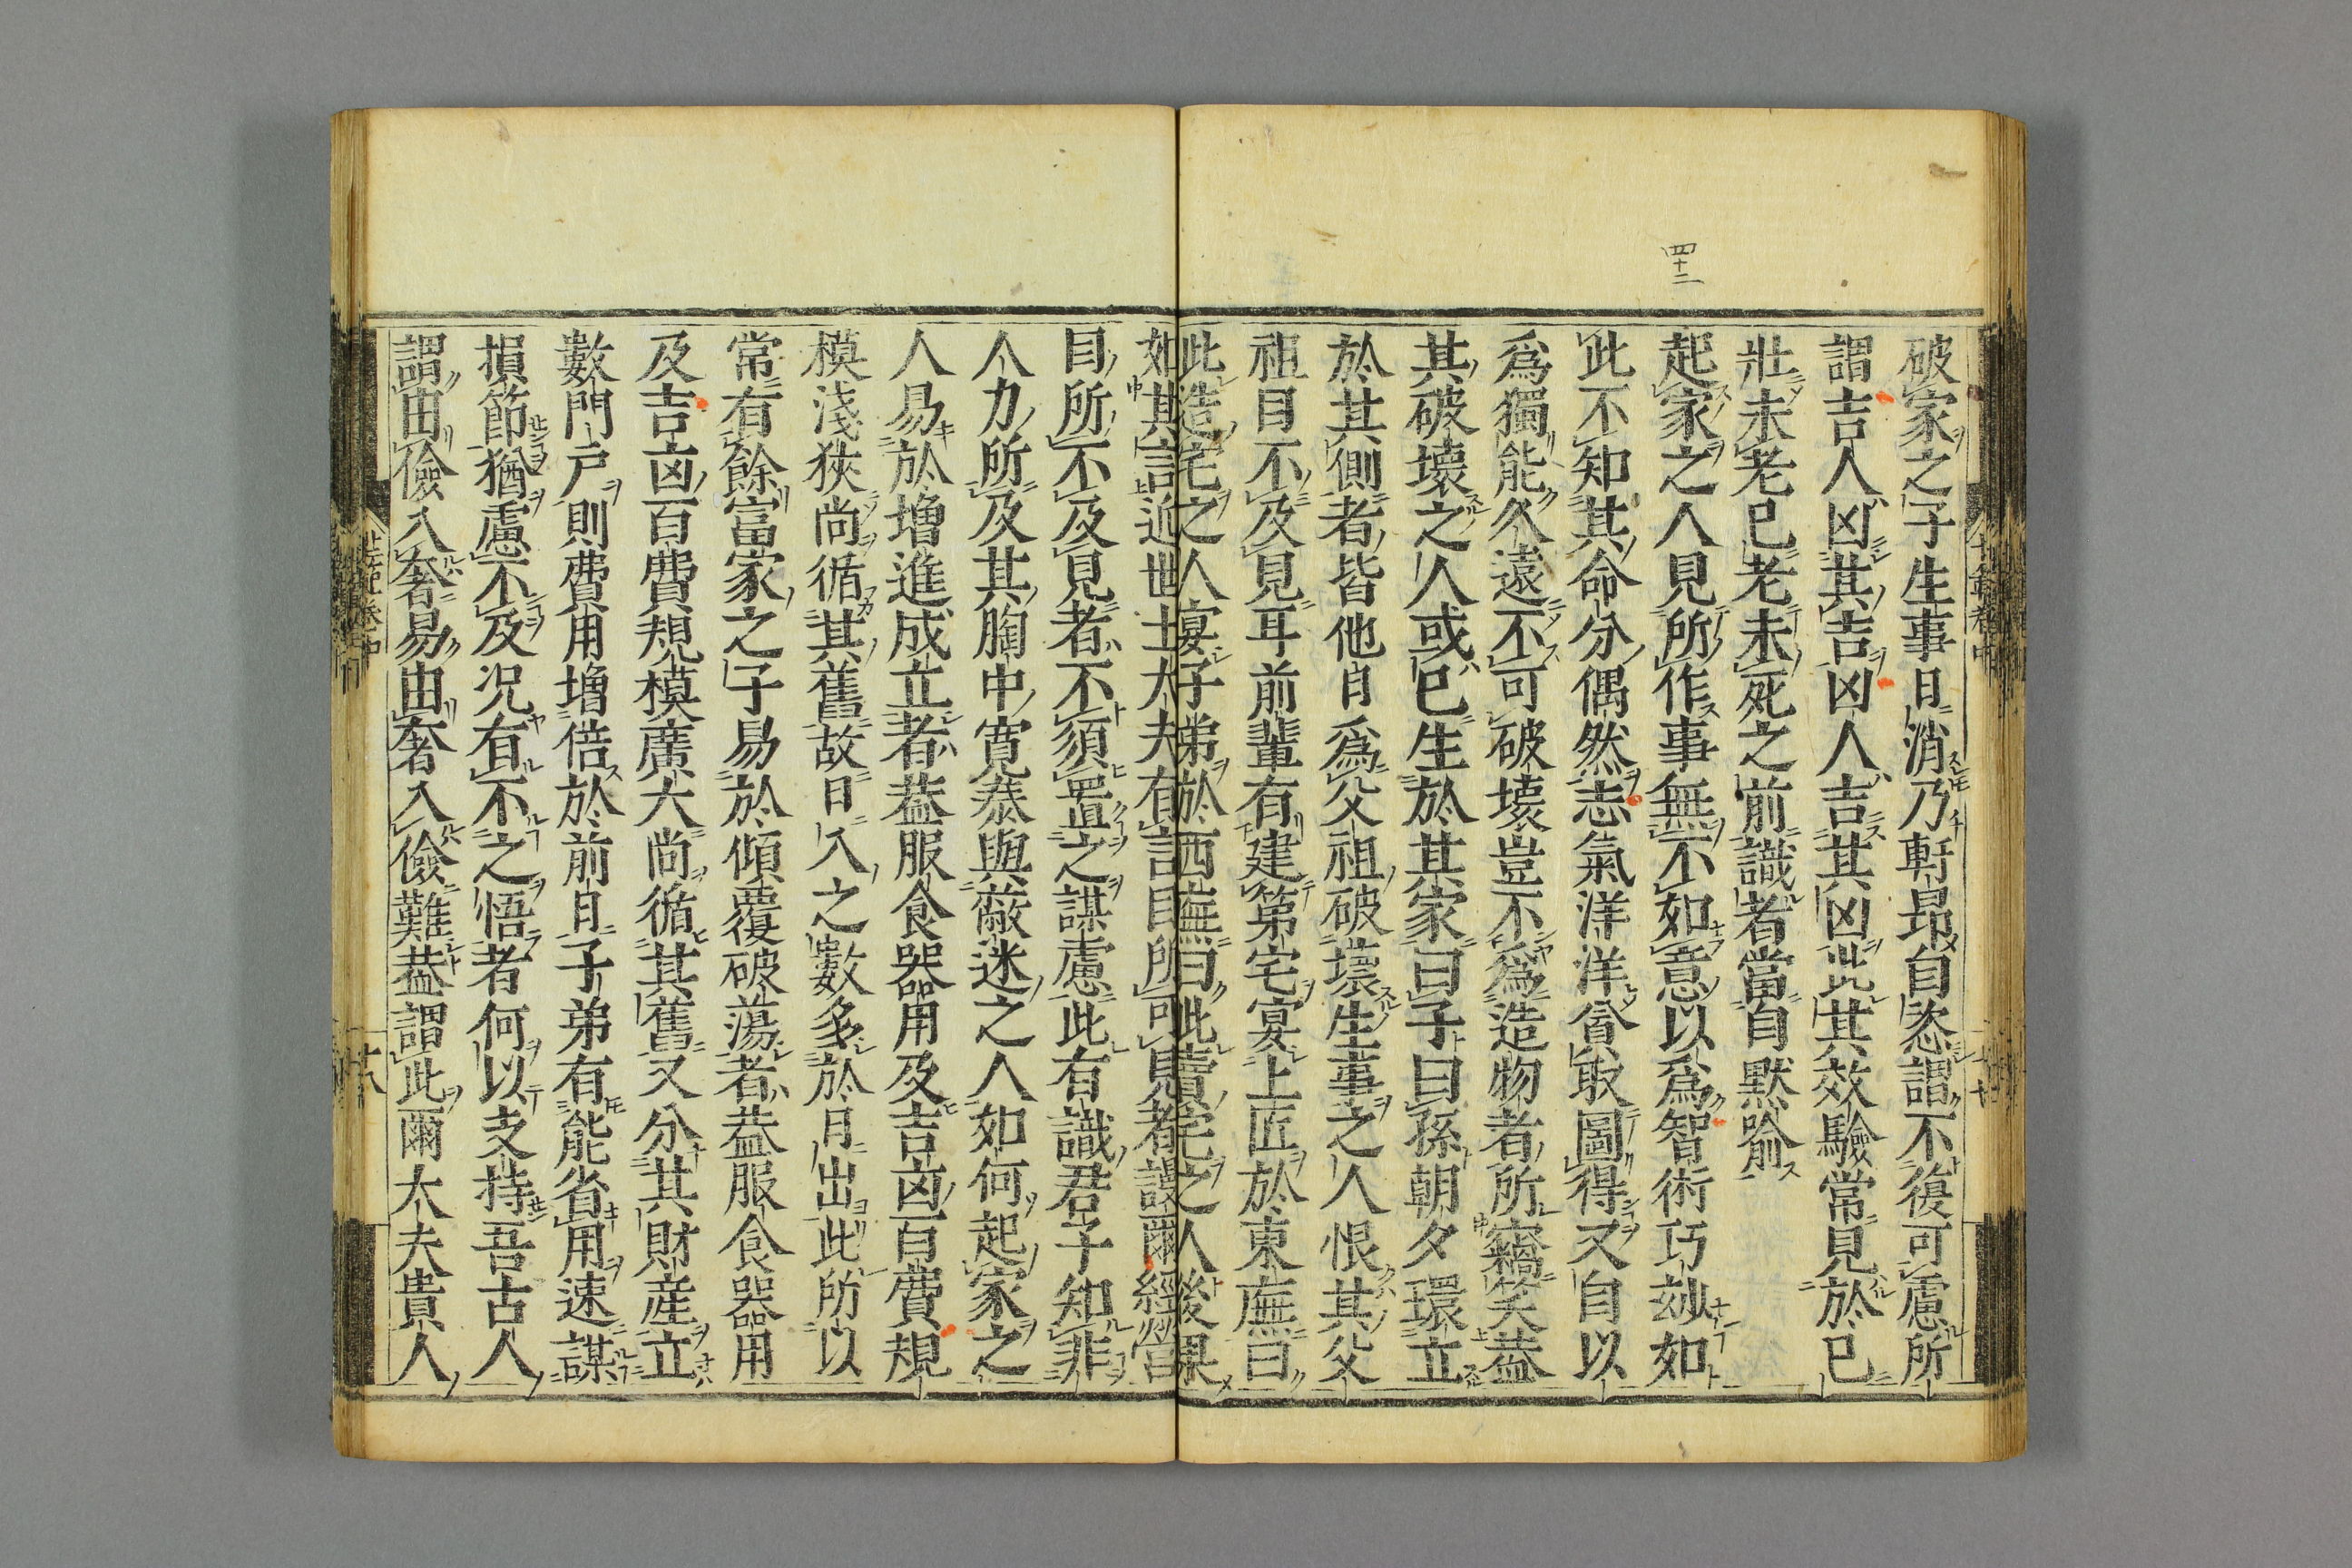 四十二
破家之子生事日消乃軒昻自恣謂不復可慮所
謂吉人凶其吉凶人吉其凶此其效驗常見於已
壯未老已老未死之前識者當自默喻
起家之人見所作事無不如意以爲智術巧玅如
此不知其命分偶然志氣洋洋貪取圖得又自以
爲獨能久遠不可破壞豈不爲造物者所竊笑葢
其破壞之人或已生於其家曰子曰孫朝夕環立
於其側者皆他日爲父祖破壞生事之人恨其父
祖目不及見耳前輩有建第宅宴上匠於東廡曰
此造宅之人宴子弟於西廡曰此賣宅之人後果
如其言近世士大夫有言目所可見者謾爾經營
目所不及見者不須置之謀慮此有識君子知非
人力所及其胸中寛泰與蔽迷之人如何起家之
人易於增進成立者葢服食器用及吉凶百費規
模淺狹尚循其舊故日入之數多於日出此所以
常有餘富家之子易於傾覆破蕩者葢服食器用
及吉凶百費規模廣大尚循其舊又分其財産立
數門戸則費用增倍於前日子弟有能省用速謀
損節猶慮不及況有不之悟者何以支持吾古人
謂由儉入奢易由奢入儉難葢謂此爾大夫貴人
卷中
廿八